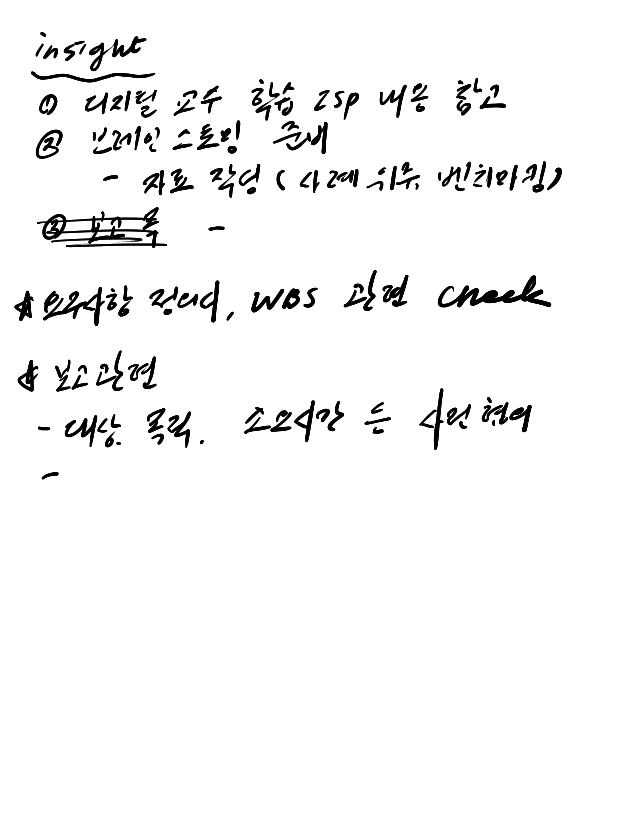 insight
① 디지털 교수 학습 ISP 내용 참고
② 브레인 스토밍 준비
- 자료 작성 (사례 위주, 벤치마킹)
③ 보고 목 -
* 요구사항 정의, WBS 관련 check
* 보고관련
- 대상, 목적, 소요시간 등 사전 협의
-